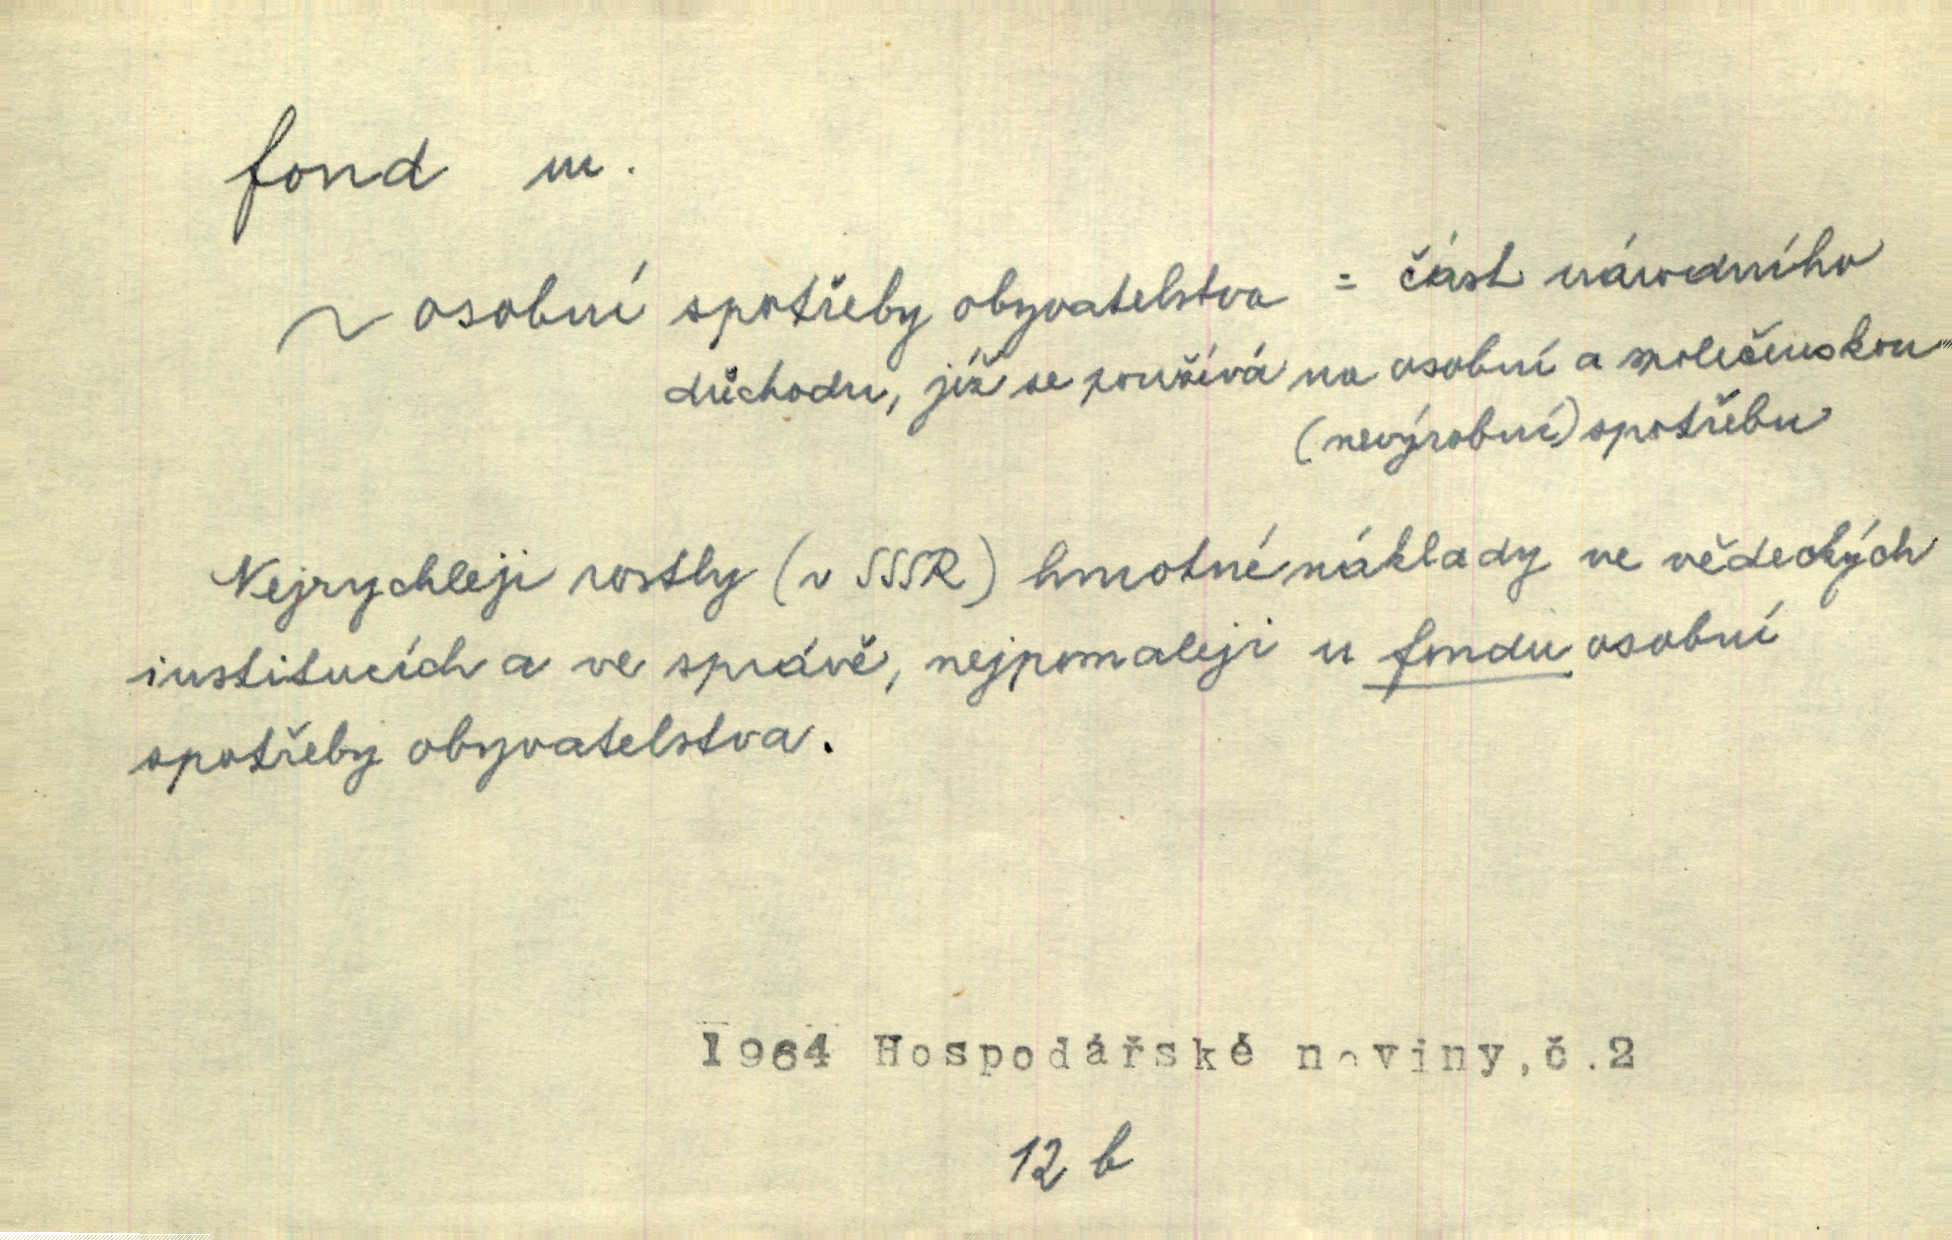 fond m.
~ osobní spotřeby obyvatelstva = část národního
důchodu, jíž se používá na osobní a společenskou
(nevýrobní) spotřebu
Nejrychleji rostly (v SSSR) hmotné náklady ve vědeckých
institucích a ve správě, nejpomaleji u fondu osobní
spotřeby obyvatelstva.
1964 Hospodářské noviny,č.2
12 b